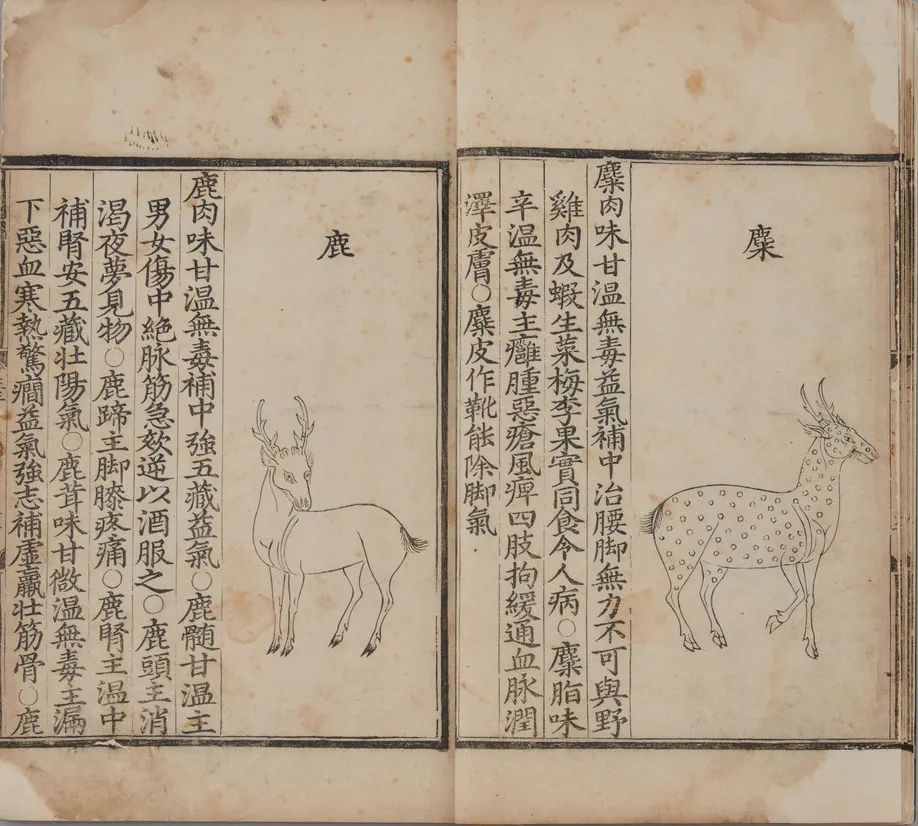 麋
麋肉味甘温無毒益氣補中治腰脚無力不可與野
雞肉及蝦生菜梅李果實同食令人病○麋脂味
辛温無毒主癰腫惡瘡風痺四肢拘緩通血脉潤
澤皮膚○麋皮作靴能除脚氣
鹿
鹿肉味甘温無毒補中強五藏益氣○鹿髓甘温主
男女傷中絶脉筋急欬逆以酒服之○鹿頭主消
渴夜夢見物○鹿蹄主脚膝疼痛○鹿腎主温中
補腎安五藏壯陽氣○鹿茸味甘微温無毒主漏
下惡血寒熱驚癇益氣強志補虛羸壯筋骨○鹿